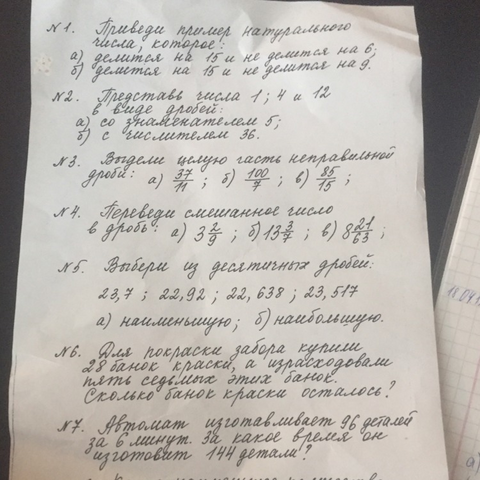 №1. Приведи пример натурального
числа, которое:
а) делится на 15 и не делится на 6;
б) делится на 15 и не делится на 9.
№2. Представь числа 1; 4 и 12
в виде дробей:
а) со знаменателем 5;
б) с числителем 36.
№3. Выдели целую часть неправильной
дроби: а) 37/11; б) 100/7; в) 85/15;
№4. Переведи смешанное число
в дробь: а) 3 2/9; б) 13 3/7; в) 8 21/63;
№5. Выбери из десятичных дробей:
23,7; 22,92; 22,638; 23,517
а) наименьшую; б) наибольшую.
№6. Для покраски забора купили
28 банок краски, а израсходовали
пять седьмых этих банок.
Сколько банок краски осталось?
№7. Автомат изготавливает 96 деталей
за 6 минут. За какое время он
изготовит 144 детали?